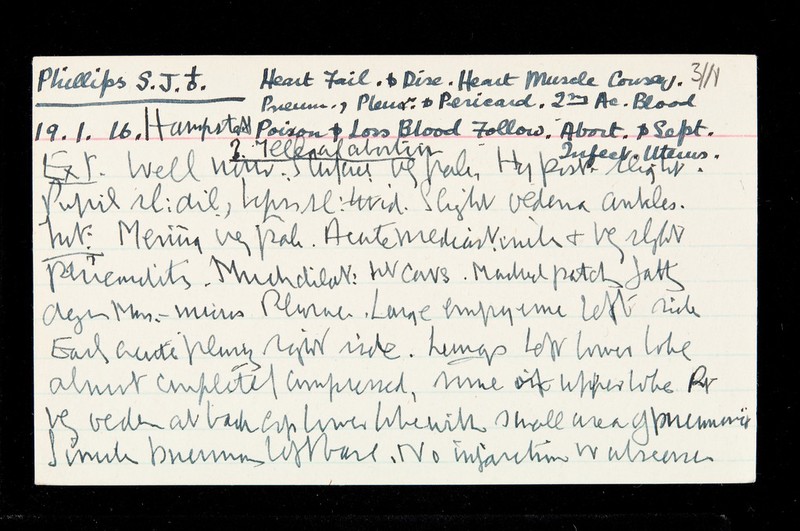 Phillips S.J. Heart Fail. & Dise. Heart Muscle Conseq. 3/1V
Pneum., Pleur. & Pericard. 2nd Ac. Blood
19.1.16. Hampstead Poison & Loss Blood Follow. Abort. & Sept.
? Illegal abortion Infect. Uterus.
Ext. Well nour. Surface vy pale. Hypost. slight.
Pupil sl: dil; lips sl: livid. Slight oedema ankles.
Int: Mening vy pale. Acute mediastinitis & vy slight
pericarditis. Much dilat: ht cavs. Marked patchy fatty
degen Mus. Pleurae. Large empyema left side
Early acute pleurisy right side. Lungs Left lower lobe
almost completely compressed, some of upper lobe Rt
vy oedem at back esp lower lobe with small area of pneumonia
Similar pneumonia left base. No infarction or abscesses